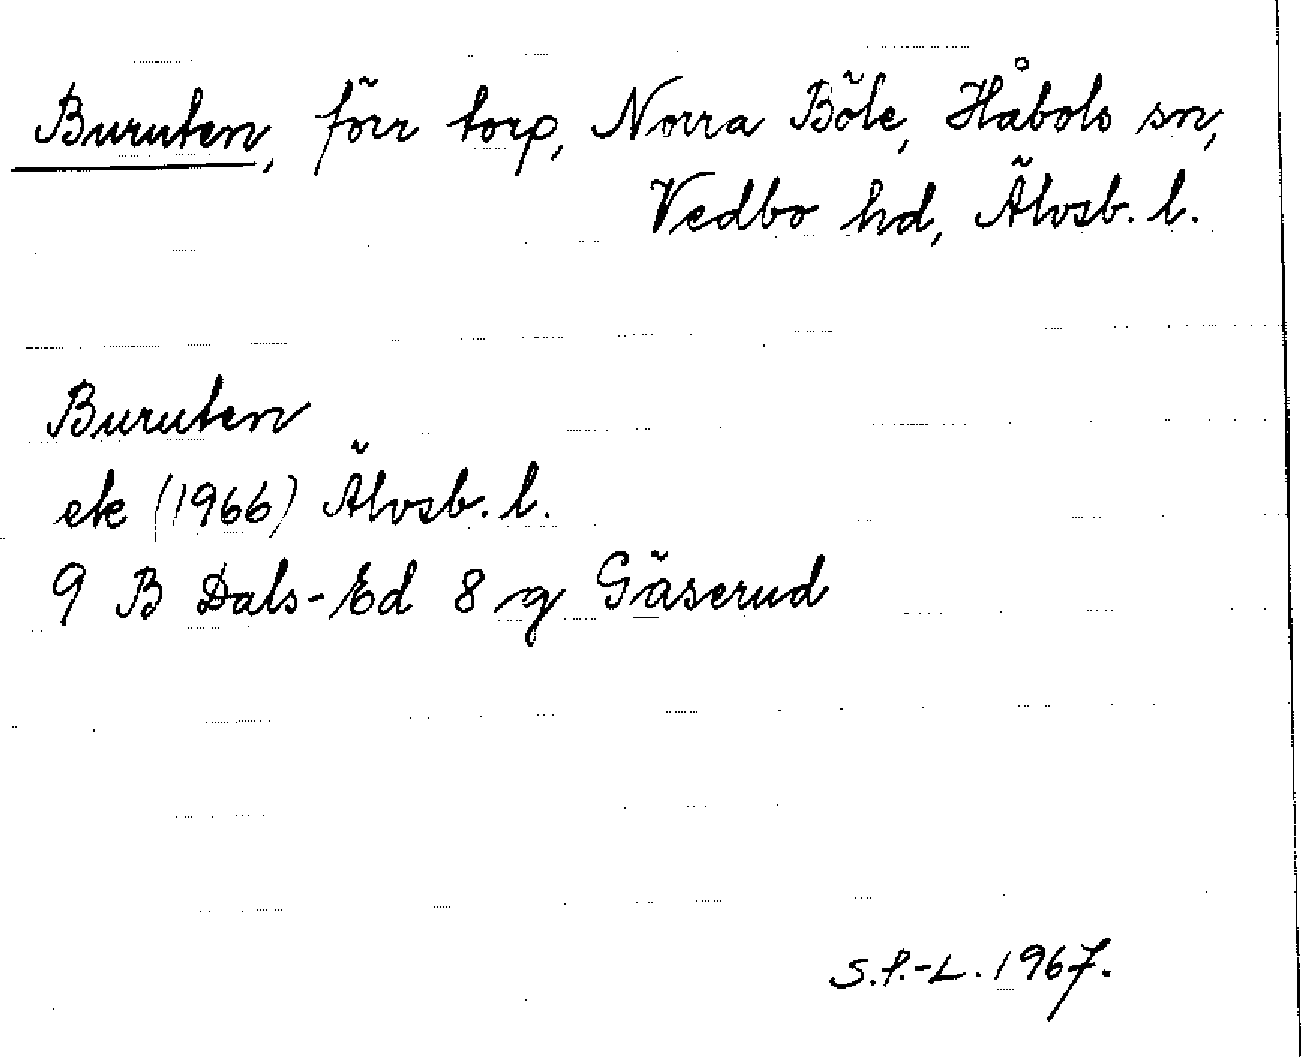 Buruten, förr torp, Norra Böle, Håbols sn,
Vedbo hd, Älvsb. l.
Buruten
ek (1966) Älvsb. l.
9 B Dals-Ed 8 g Gäserud
S.P.-L. 1967.